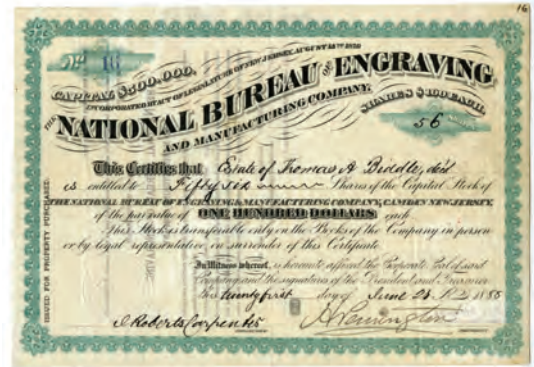 16
No 16
CAPITAL $500,000.
INCORPORATED BY ACT OF LEGISLATURE OF NEW JERSEY, AUGUST
THE NATIONAL BUREAU OF ENGRAVING
AND MANUFACTURING COMPANY.
SHARES $100 EACH.
56
This Certifies that Estate of Thomas A Biddle, dec'd
is entitled to Fifty six Shares of the Capital Stock of
THE NATIONAL BUREAU OF ENGRAVING & MANUFACTURING COMPANY, CAMDEN NEW JERSEY,
of the par value of ONE HUNDRED DOLLARS each
This Stock is transferable only on the Books of the Company in person
or by legal representative, on surrender of this Certificate
In Witness whereof, is hereunto affixed the Corporate Seal of said
Company and the signatures of the President and Treasurer
this twenty first day of June
J Roberts Carpenter
ISSUED FOR PROPERTY PURCHASED.